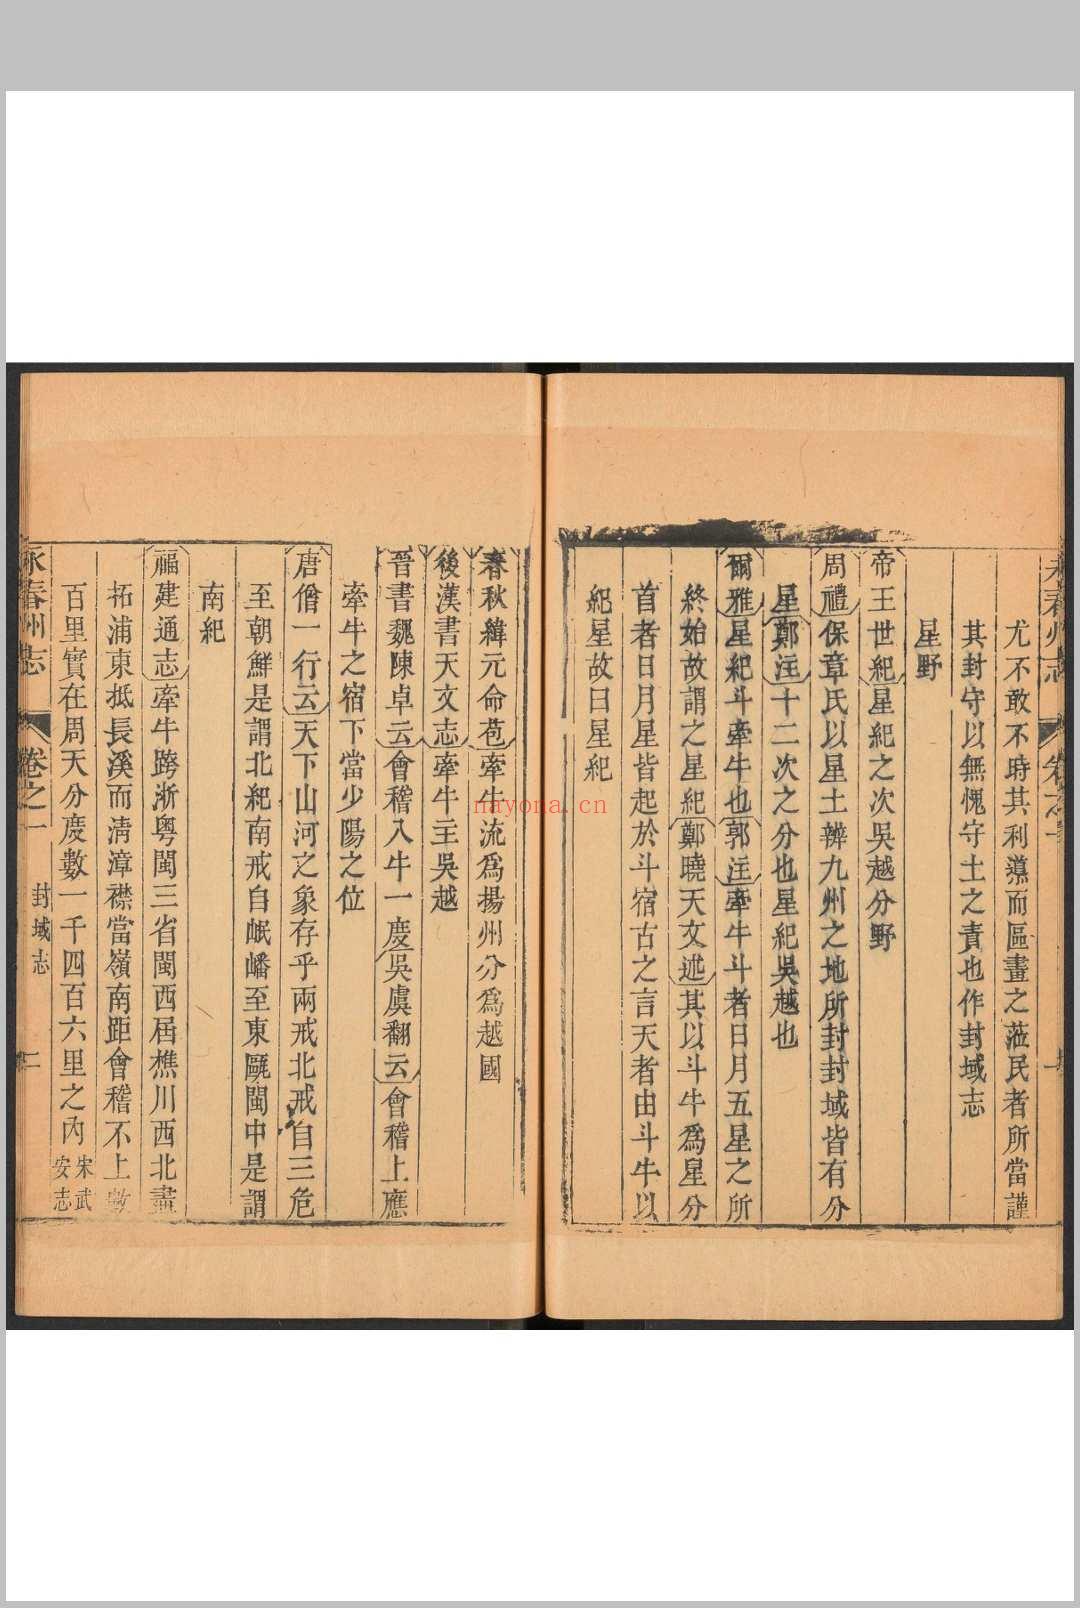 尤不敢不時其利導而區畫之蒞民者所當謹
其封守以無愧守土之責也作封域志
星野
帝王世紀星紀之次吳越分野
周禮保章氏以星土辨九州之地所封封域皆有分
星鄭注十二次之分也星紀吳越也
爾雅星紀斗牽牛也郭注牽牛斗者日月五星之所
終始故謂之星紀鄭曉天文述其以斗牛為星分
首者日月星皆起於斗宿古之言天者由斗牛以
紀星故曰星紀
春秋緯元命苞牽牛流為揚州分為越國
後漢書天文志牽牛主吳越
晉書魏陳卓云會稽入牛一度吳虞翻云會稽上應
牽牛之宿下當少陽之位
唐僧一行云天下山河之象存乎兩戒北戒自三危
至朝鮮是謂北紀南戒自岷嶓至東甌閩中是謂
南紀
福建通志牽牛跨浙粵閩三省閩西屆樵川西北盡
拓浦東抵長溪而清漳襟當嶺南距會稽不上數
百里實在周天分度數一千四百六里之內宋武
安志
永春州志 卷之一 封域志 二
nayona.cn